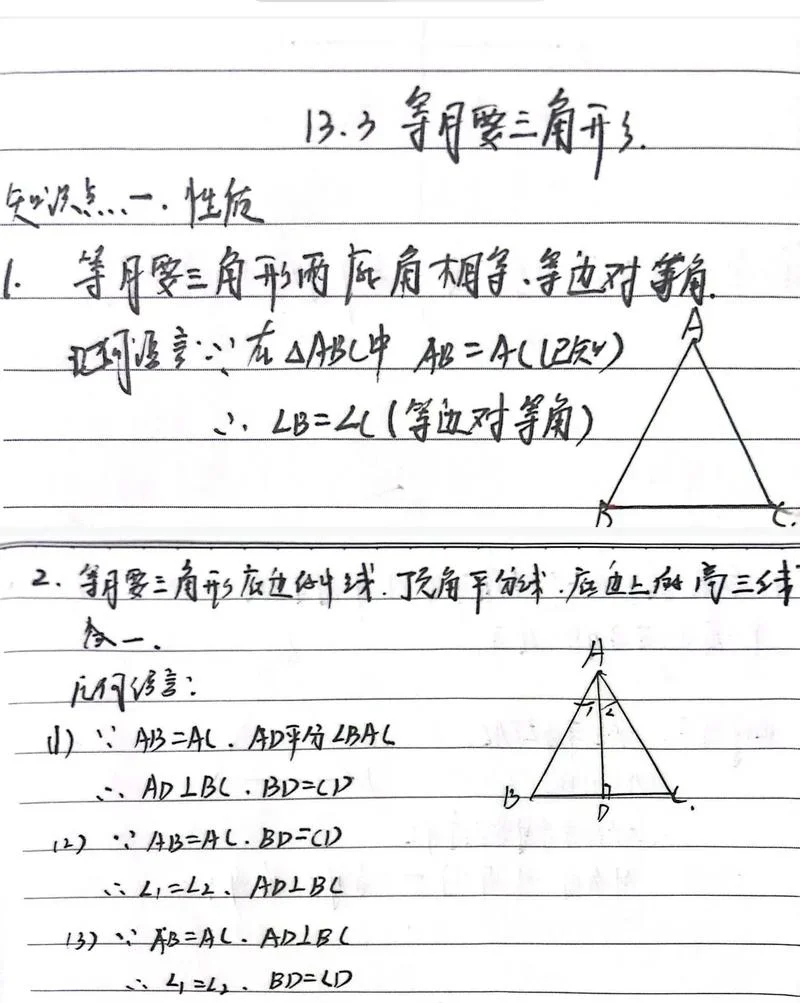 13.3 等腰三角形.
知识点一. 性质
1. 等腰三角形两底角相等.等边对等角.
几何语言:∵在△ABC中 AB=AC(已知)
∴ ∠B=∠C(等边对等角)
A
B
C.
2. 等腰三角形底边的中线.顶角平分线.底边上的高三线
合一.
几何语言:
(1) ∵ AB=AC. AD平分∠BAC
∴ AD⊥BC. BD=CD
(2) ∵ AB=AC. BD=CD
∴ ∠1=∠2. AD⊥BC
(3) ∵ AB=AC. AD⊥BC
∴ ∠1=∠2. BD=CD
A
1 2
B
D
C.